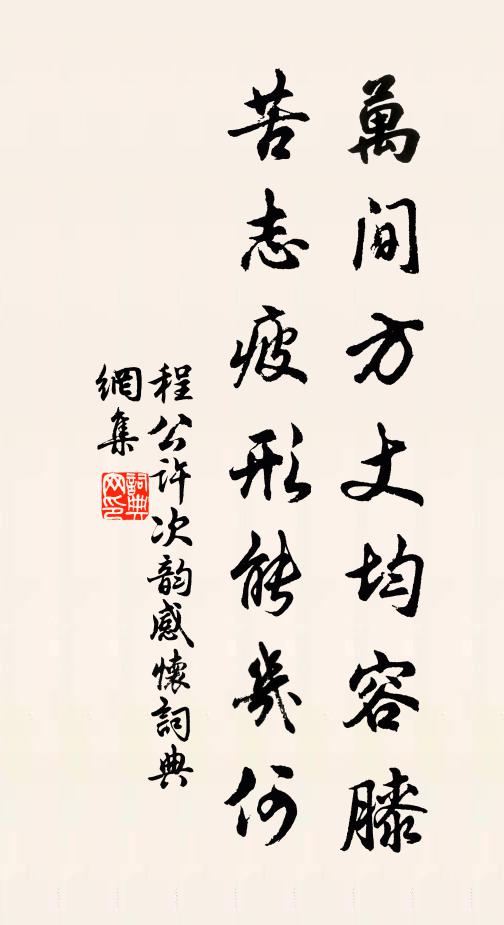 萬間方丈均容膝
苦志疲形能幾何
程公許次韵感懷詞典
網集
詞典網印